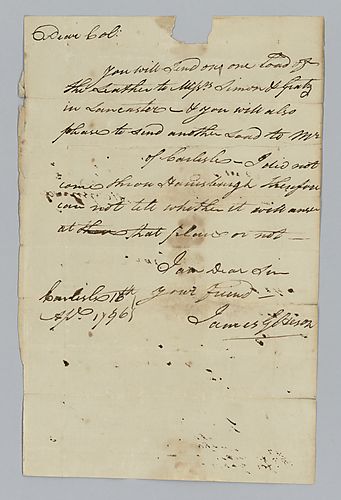 Dear Col:
you will send on one Load of
the Leather to Messrs Simon & Gratz
in Lancaster & you will also
please to send another Load to Mr
of Carlisle - I did not
come throu Harrisburgh therefore
can not tell whether it will answer
at then that place or not -
I am Dear Sir
your friend -
Carlisle 18th
Apl. 1796
James